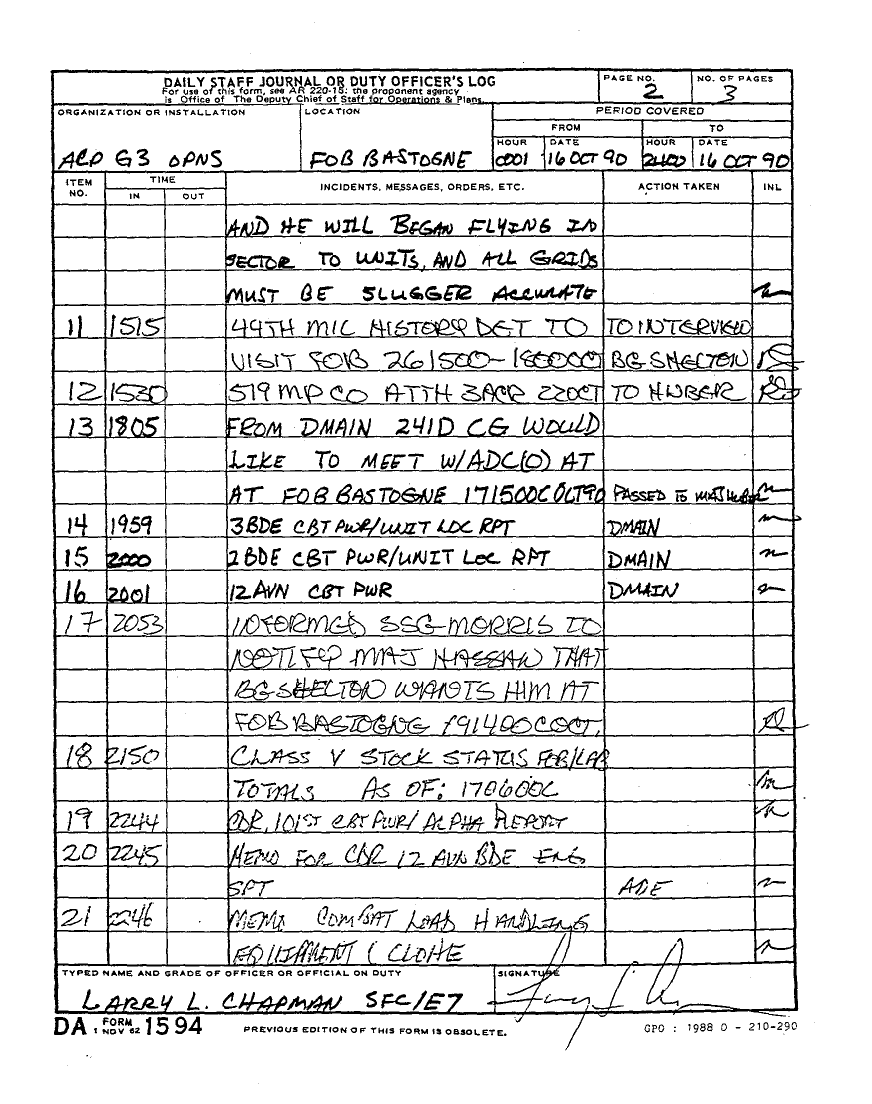 DAILY STAFF JOURNAL OR DUTY OFFICER'S LOG
For use of this form, see AR 220-15; the proponent agency
is Office of The Deputy Chief of Staff for Operations & Plans.
PAGE NO.
2
NO. OF PAGES
3
ORGANIZATION OR INSTALLATION
ACP G3 OPNS
LOCATION
FOB BASTOGNE
PERIOD COVERED
FROM
TO
HOUR
0001
DATE
16 OCT 90
HOUR
2400
DATE
16 OCT 90
ITEM NO.
TIME
IN
OUT
INCIDENTS, MESSAGES, ORDERS, ETC.
ACTION TAKEN
INL
AND HE WILL BEGAN FLYING IN
SECTOR TO UNITS, AND ALL GRIDS
MUST BE SLUGGER ACCURATE
11 1515 44TH MIL HISTORY DET TO TO INTERVIEW
VISIT FOB 261500-180000 BG SHELTON
12 1530 519 MP CO ATTH 3ACR 22OCT TO HUBER
13 1805 FROM DMAIN 24ID CG WOULD
LIKE TO MEET W/ADC(O) AT
AT FOB BASTOGNE 171500C OCT90 PASSED TO MAJ
14 1959 3BDE CBT PWR/UNIT LOC RPT DMAIN
15 2000 2BDE CBT PWR/UNIT LOC RPT DMAIN
16 2001 12 AVN CBT PWR DMAIN
17 2053 INFORMED SSG MORRIS TO
NOTIFY MAJ HASSAN THAT
BG SHELTON WANTS HIM AT
FOB BASTOGNE 191400COCT.
18 2150 CLASS V STOCK STATUS FOR/LAR
TOTALS AS OF: 170600C
19 2244 CDR, 101ST CBT PWR/ ALPHA REPORT
20 2245 MEMO FOR CDR 12 AVN BDE ENG
SPT ADE
21 2246 MEMO COMBAT LOAD HANDLING
EQUIPMENT (
TYPED NAME AND GRADE OF OFFICER OR OFFICIAL ON DUTY
LARRY L. CHAPMAN SFC/E7
SIGNATURE
DA FORM 1 NOV 62 1594
PREVIOUS EDITION OF THIS FORM IS OBSOLETE.
GPO : 1988 O - 210-290